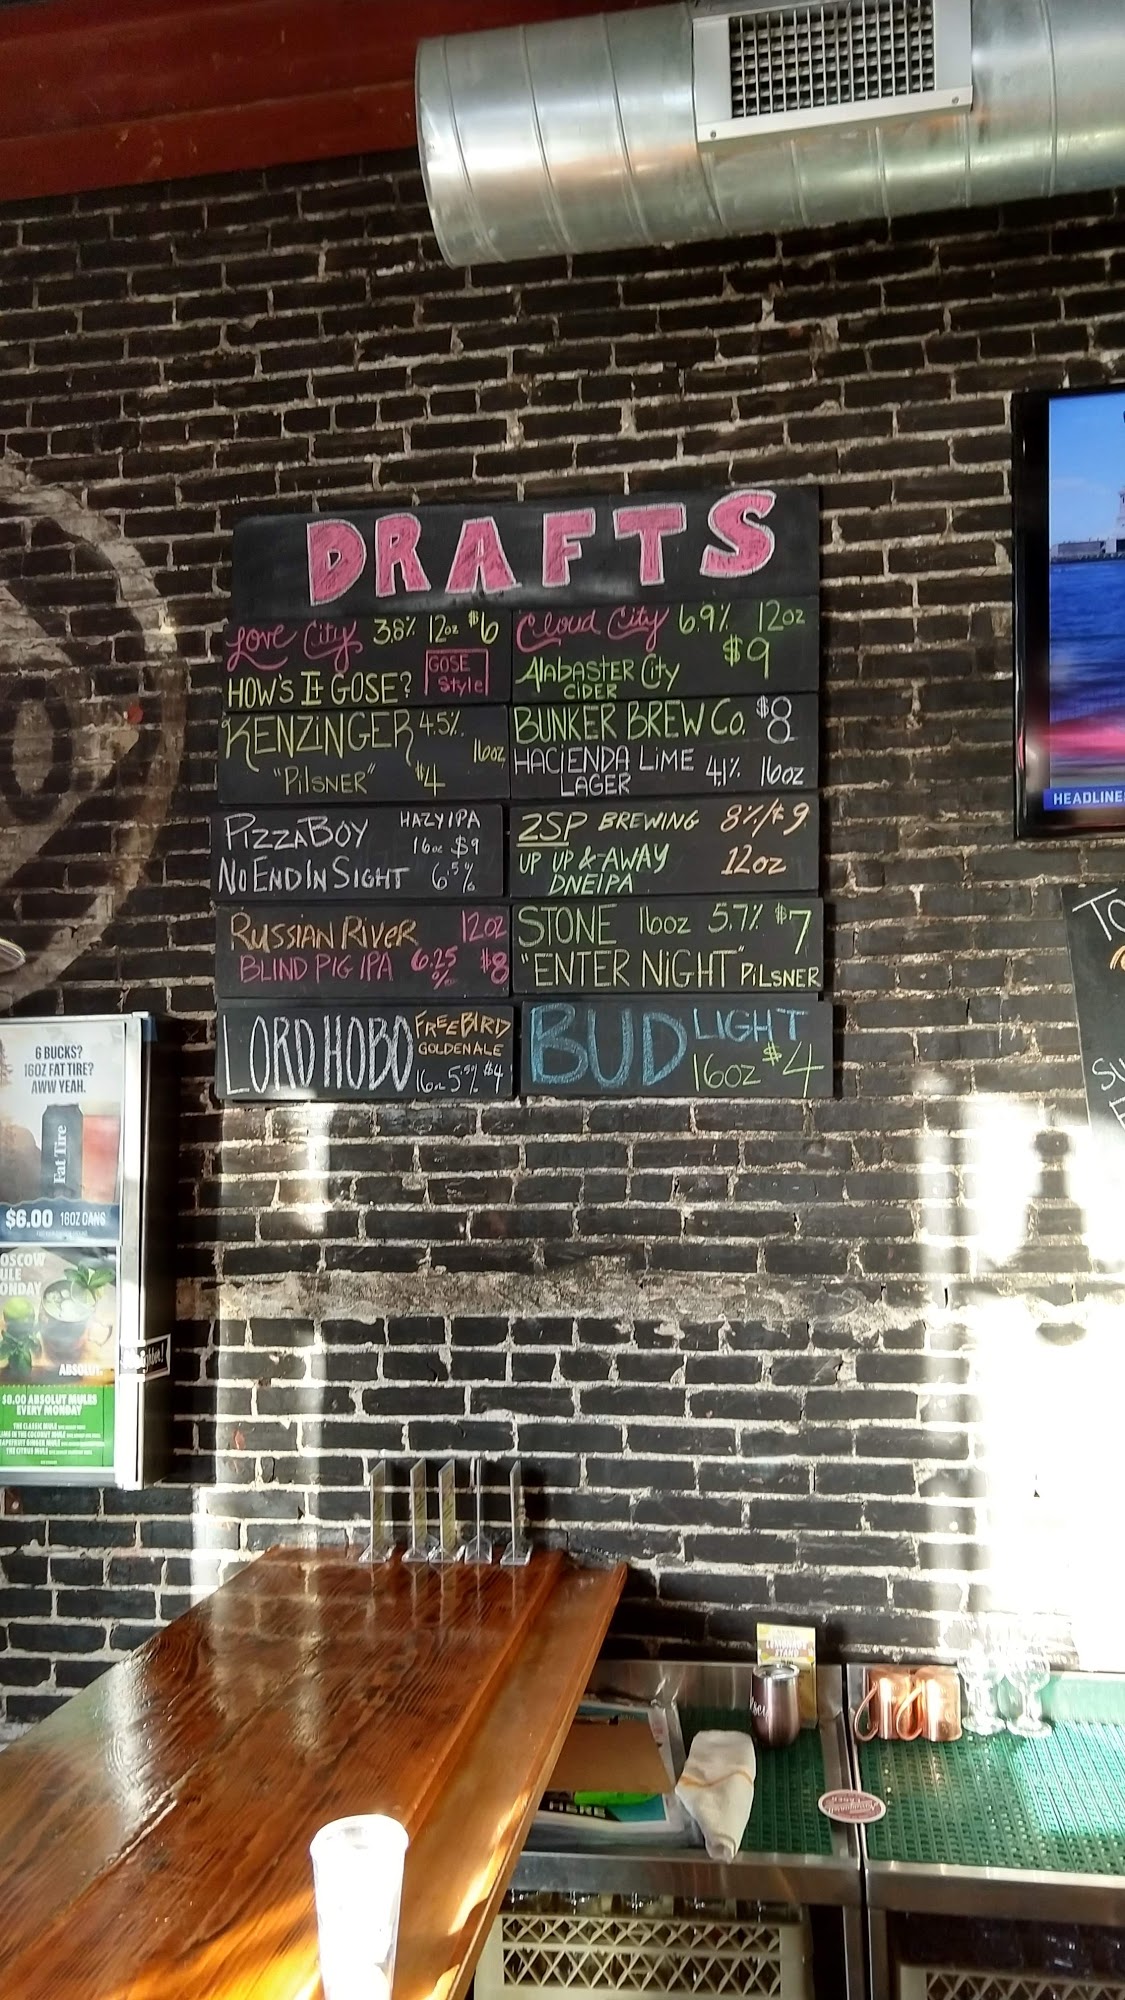 DRAFTS
Love City 3.8% 12oz $6
HOW'S It GOSE?
GOSE
Style
Cloud City 6.9% 12oz
$9
Alabaster City
CIDER
KENZINGER 4.5%
16oz
"Pilsner" $4
BUNKER BREW Co. $8
HACIENDA LIME 4.1% 16oz
LAGER
PizzaBoy HAZY IPA
16oz $9
No End In Sight 6.5%
2SP BREWING 8%/$9
UP UP & AWAY 12oz
DNEIPA
Russian River 12oz
BLIND PIG IPA 6.25% $8
STONE 16oz 5.7% $7
"ENTER NIGHT" PILSNER
LORD HOBO FREEBIRD
GOLDEN ALE
16oz 5.5% $4
BUD LIGHT
16oz $4
HEADLINES
TO
SU
6 BUCKS?
16OZ FAT TIRE?
AWW YEAH.
Fat Tire
$6.00 16OZ CANS
OSCOW
ULE
ONDAY
ABSOLUT.
$8.00 ABSOLUT MULES
EVERY MONDAY
THE CLASSIC MULE
LIME IN THE COCONUT MULE
GRAPEFRUIT GINGER MULE
THE CITRUS MULE
LEMONADE
STAND
HERE